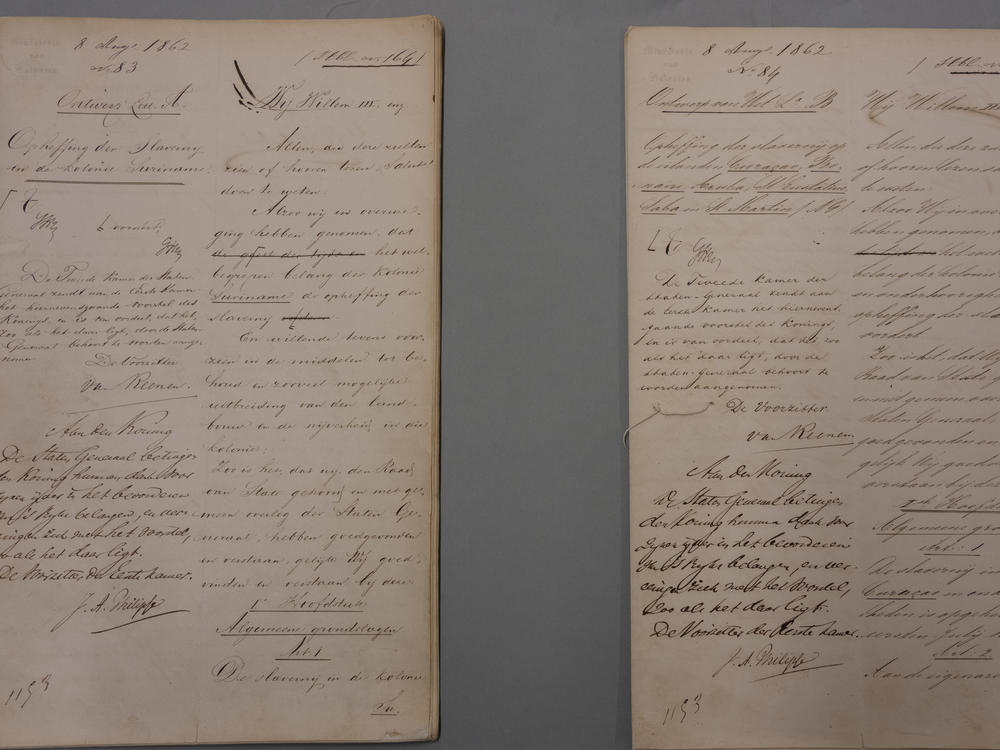 8 Augs. 1862
No. 83
Ontwerp Lett. A.
Opheffing der Slaverny
in de kolonie Suriname
De Tweede Kamer der Staten
Generaal zendt aan de Eerste Kamer
het hiernevensgaande voorstel des
Konings, en is van oordeel, dat het,
zoo als het daar ligt, door de Staten
Generaal behoort te worden aange-
nomen
De Voorzitter
Van Reenen.
Aan den Koning
De Staten Generaal betuigen
den Koning hunnen dank voor
zynen yver in het bevorderen
van 's Ryks belangen, en ver-
eenigen zich met het voorstel,
zoo als het daar ligt.
De Voorzitter der Eerste Kamer.
J. A. Philipse
1153
(Stbl. no. 164)
Wij Willem III, enz.
Allen, die deze zullen
zien of hooren lezen, Salut!
doen te weten:
Alzoo wij in overwe-
ging hebben genomen, dat
de geest des tijds en het wel-
begrepen belang der kolonie
Suriname de opheffing der
slaverny
En willende tevens voor-
zien in de middelen tot be-
houd en zooveel mogelijke
uitbreiding van den land-
bouw en de nijverheid in die
kolonie;
Zoo is het, dat wij, den Raad
van State gehoord, en met ge-
meen overleg der Staten Ge-
neraal, hebben goedgevonden
en verstaan, gelijk Wij goed-
vinden en verstaan bij deze:
1e Hoofdstuk
Algemeene grondslagen
Art. 1
De slavernij in de kolonie
Su-
8 Augs. 1862
No. 84
Ontwerp van Wet La. B
Opheffing der slavernij op
de eilanden Curaçao, Bo-
naire, Aruba, St. Eustatius,
Saba en St. Martin (N.G.)
De Tweede Kamer der
Staten-Generaal zendt aan
de Eerste Kamer het hiernevens-
gaande voorstel des Konings,
en is van oordeel, dat het, zoo
als het daar ligt, door de
Staten-Generaal behoort te
worden aangenomen.
De Voorzitter
Van Reenen
Aan den Koning
De Staten Generaal betuigen
den Koning hunnen dank voor
Zynen yver in het bevorderen
van 's Ryks belangen, en ver-
eenigen zich met het voorstel,
zoo als het daar ligt.
De Voorzitter der Eerste Kamer.
J. A. Philipse
1153
(Stbl. no.
Wij Willem III
Allen, die deze zu
of hooren lezen sa
te weten:
Alzoo Wij in over
hebben genomen,
het wel
belang der kolonie
en onderhoorigh
opheffing der sla
vordert
Zoo is het, dat Wij
Raad van State g
en met gemeen over
Staten Generaal,
goedgevonden en
gelijk Wij goedv
verstaan bij deze
1e Hoofd
Algemeene gro
Art. 1
De slavernij in
Curaçao en ond
is opgeh
Julij
Art. 2
Aan de eigenaren